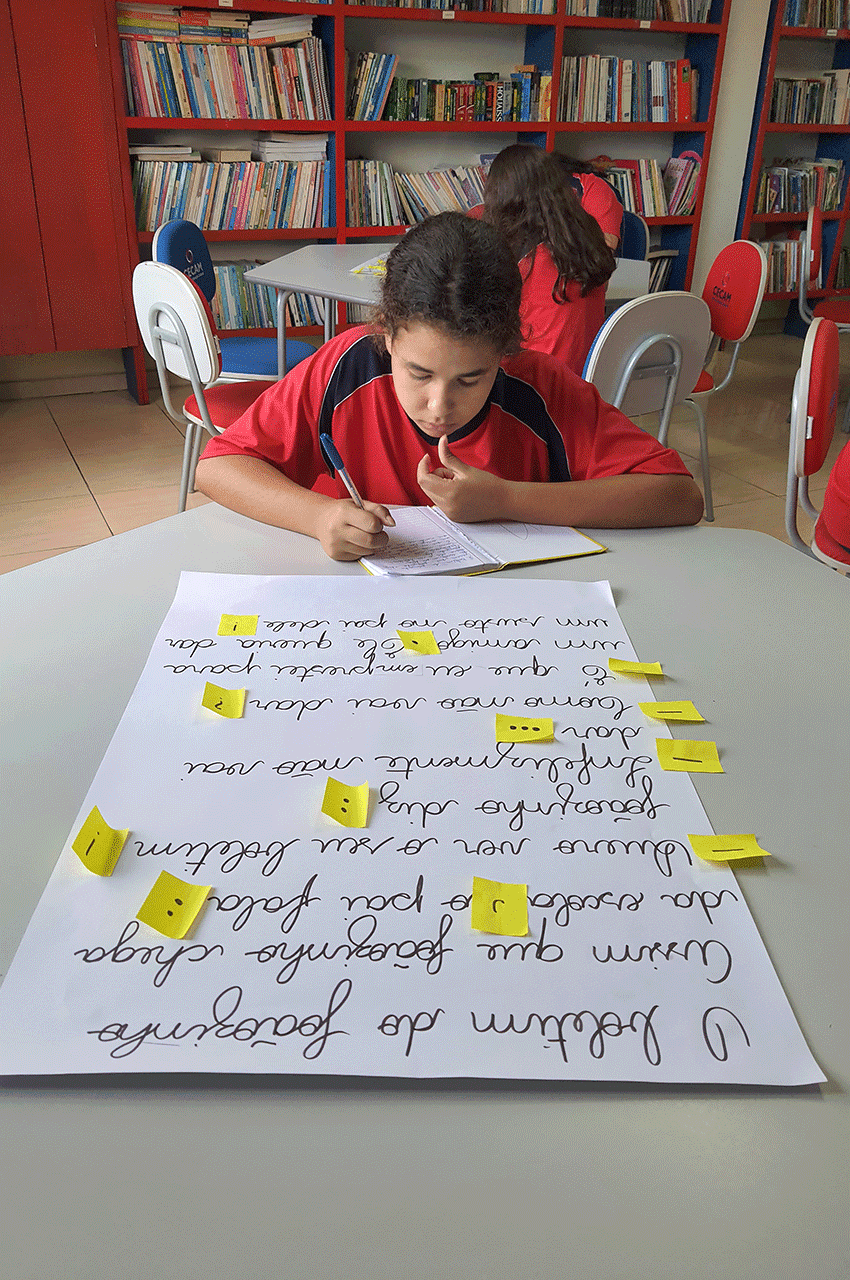 O boletim do Joãozinho
Assim que Joãozinho chega
da escola, o pai fala:
— Quero ver o seu boletim!
Joãozinho diz:
— Infelizmente não vai
dar...
— Como não vai dar?
— É que eu emprestei para
um amigo. Ele queria dar
um susto no pai dele!
CECAM
CECAM
HOUAISS